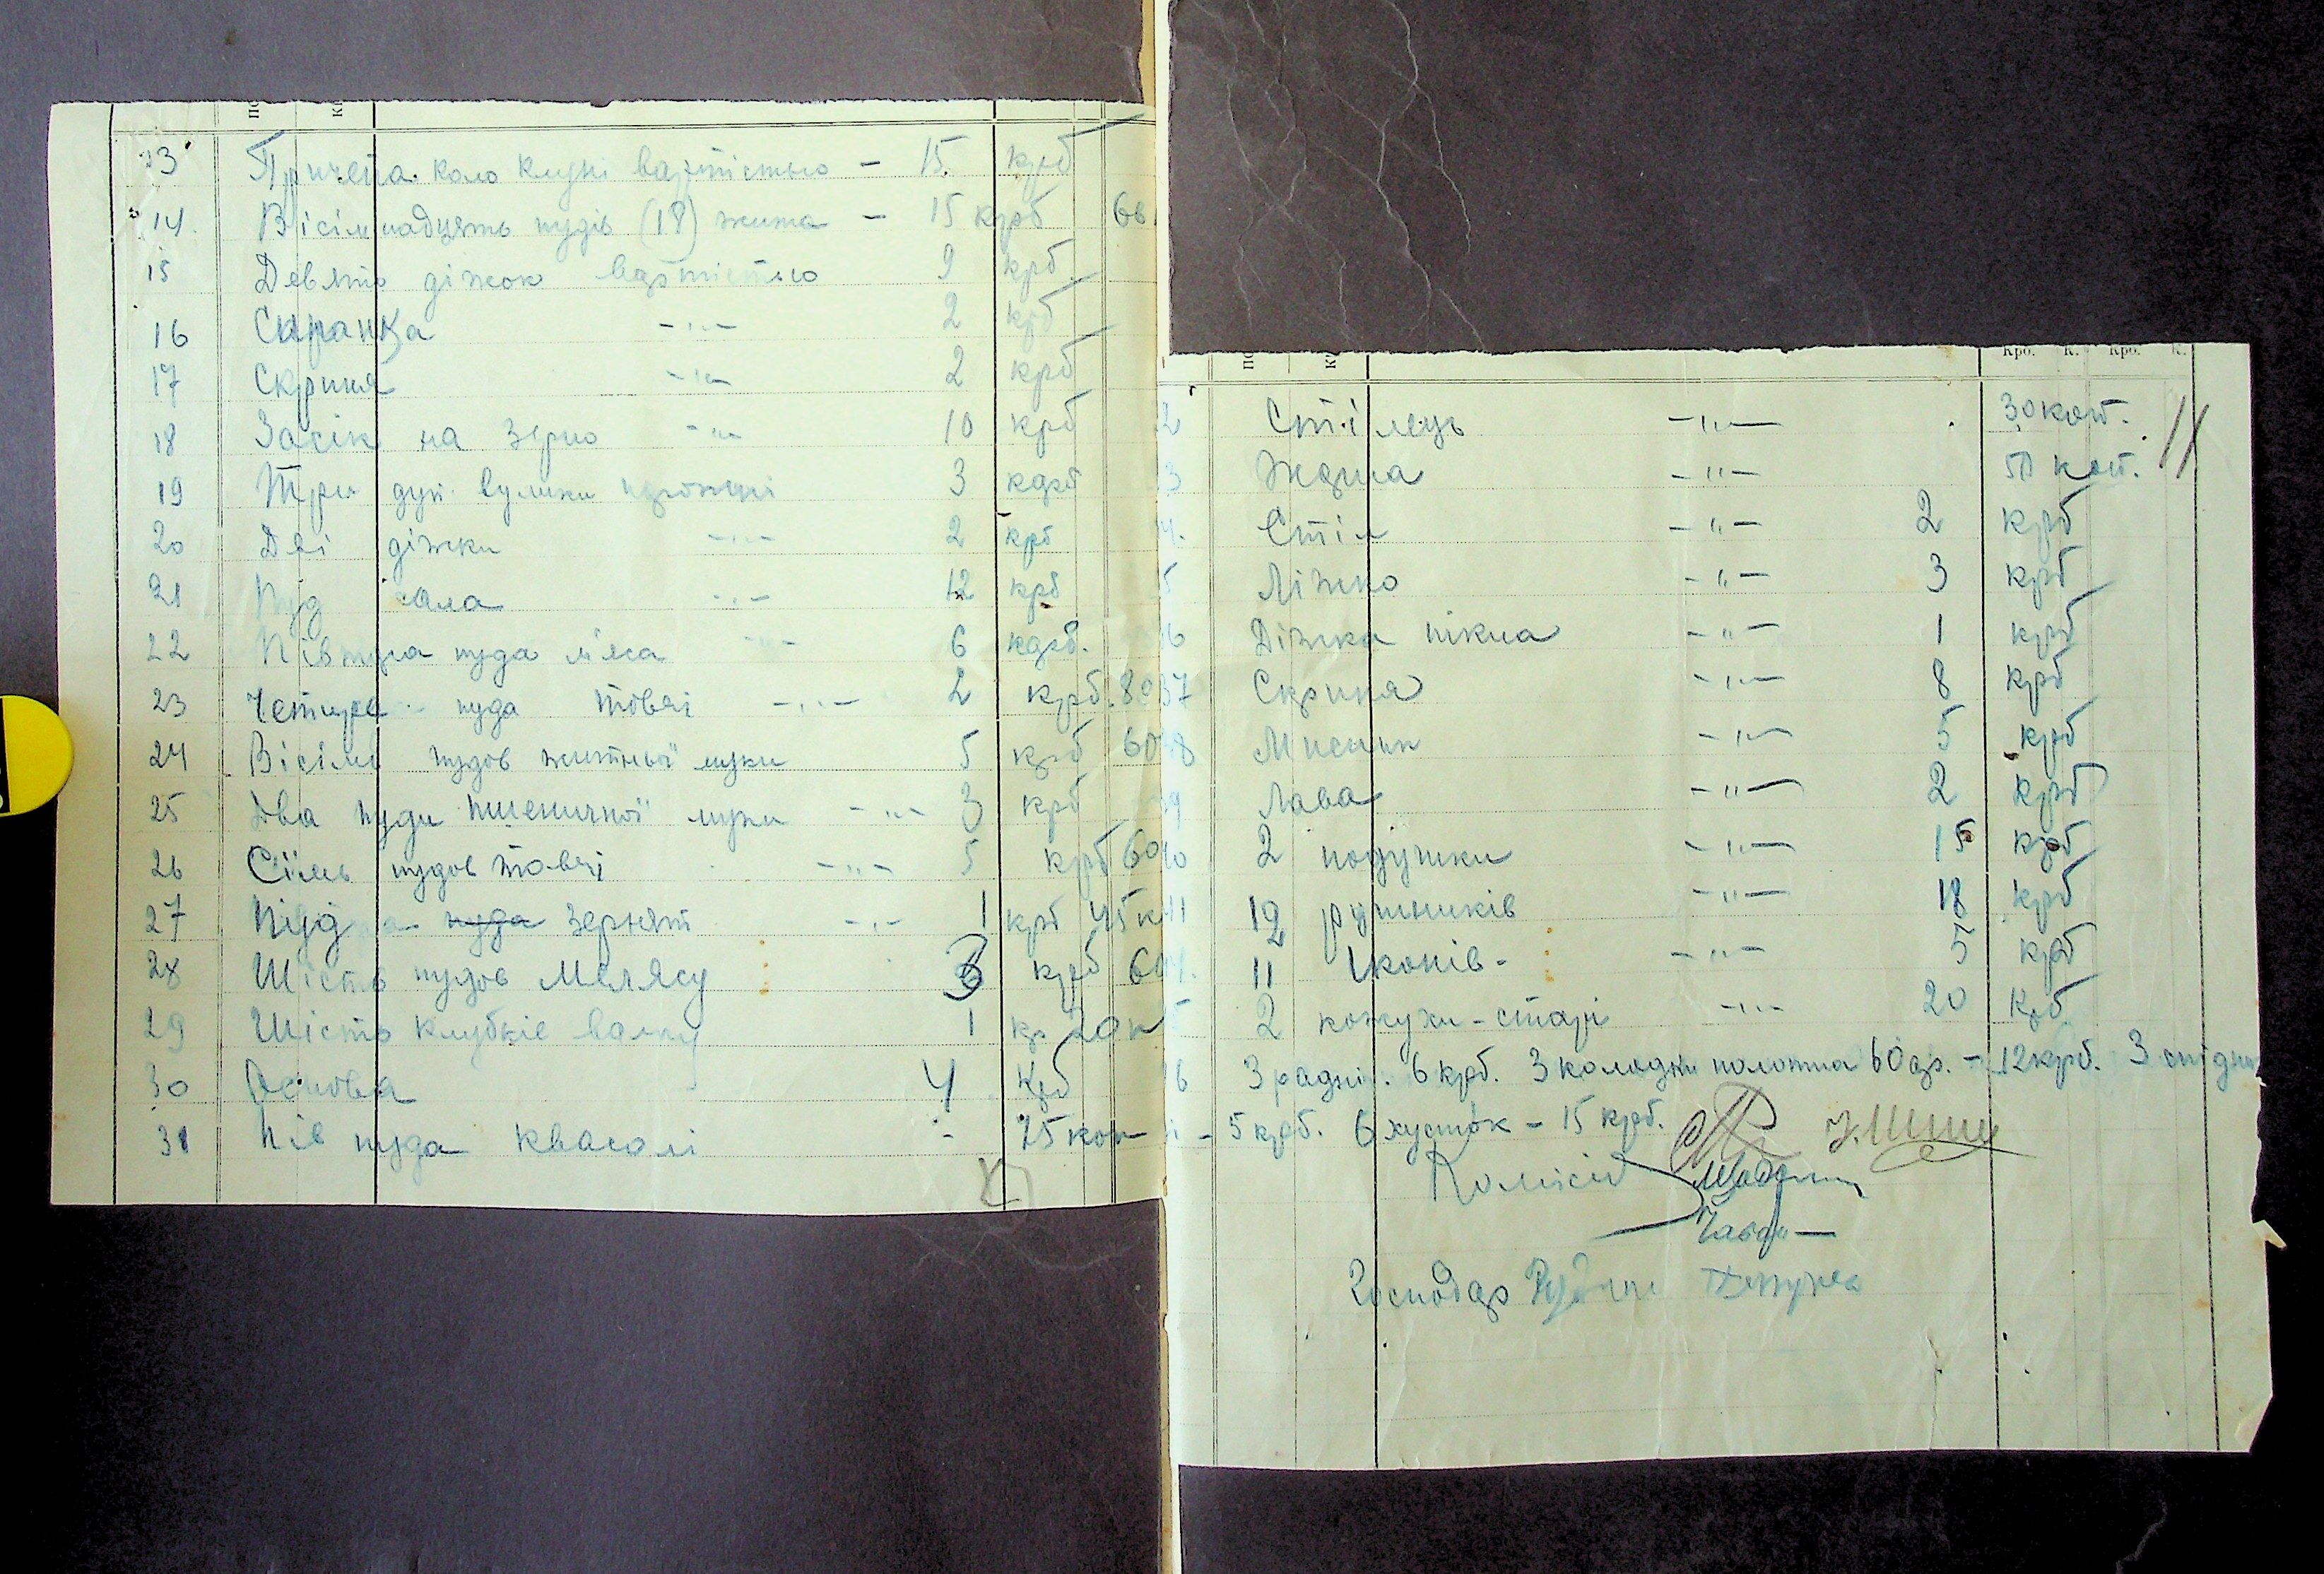 13 Причепа коло клуні вартістью - 15 крб
14. Вісімнадцять пудів (18) жита - 15 крб 66
15 Девять діжок вартістью 9 крб
16 Скранка -"- 2 крб
17 Скриня -"- 2 крб
18 Засік на зерно -"- 10 крб
19 Три дуп. вулики 3 кдрб
20 Дві діжки -"- 2 крб
21 Пуд сала -"- 12 крб
22 Півтора пуда мяса -"- 6 кдрб.
23 Четире пуда товчі -"- 2 крб. 80
24 Вісім пудов житньої муки 5 крб 60
25 Два пуди пшеничної муки -"- 3 крб
26 Сїмь пудов товчі -"- 5 крб 60
27 Пуд пуда зернят -"- 1 крб 45 к
28 Шість пудов Мелясу 3 крб 60
29 Шість клубків валку 1 кр 20 к
30 Основа 4 крб
31 Пів пуда квасолі - 75 коп
Крб. К. Крб. К.
2 Стілець -"- 30 коп. 11
3 Жорна -"- 50 коп.
4. Стіл -"- 2 крб
5 Ліжко -"- 3 крб
6 Діжка пікна -"- 1 крб
37 Скриня -"- 8 крб
8 Мисник -"- 5 крб
9 Лава -"- 2 крб
2 подушки -"- 15 крб
41 12 рушників -"- 18 крб
11 Іконів - -"- 5 крб
2 кожухи - старі -"- 20 крб
6 3 радні. 6 крб. 3 колодки полотна 60 ар. - 12 крб. 3 спідни
і - 5 крб. 6 хусток - 15 крб.
Комісія
Господар